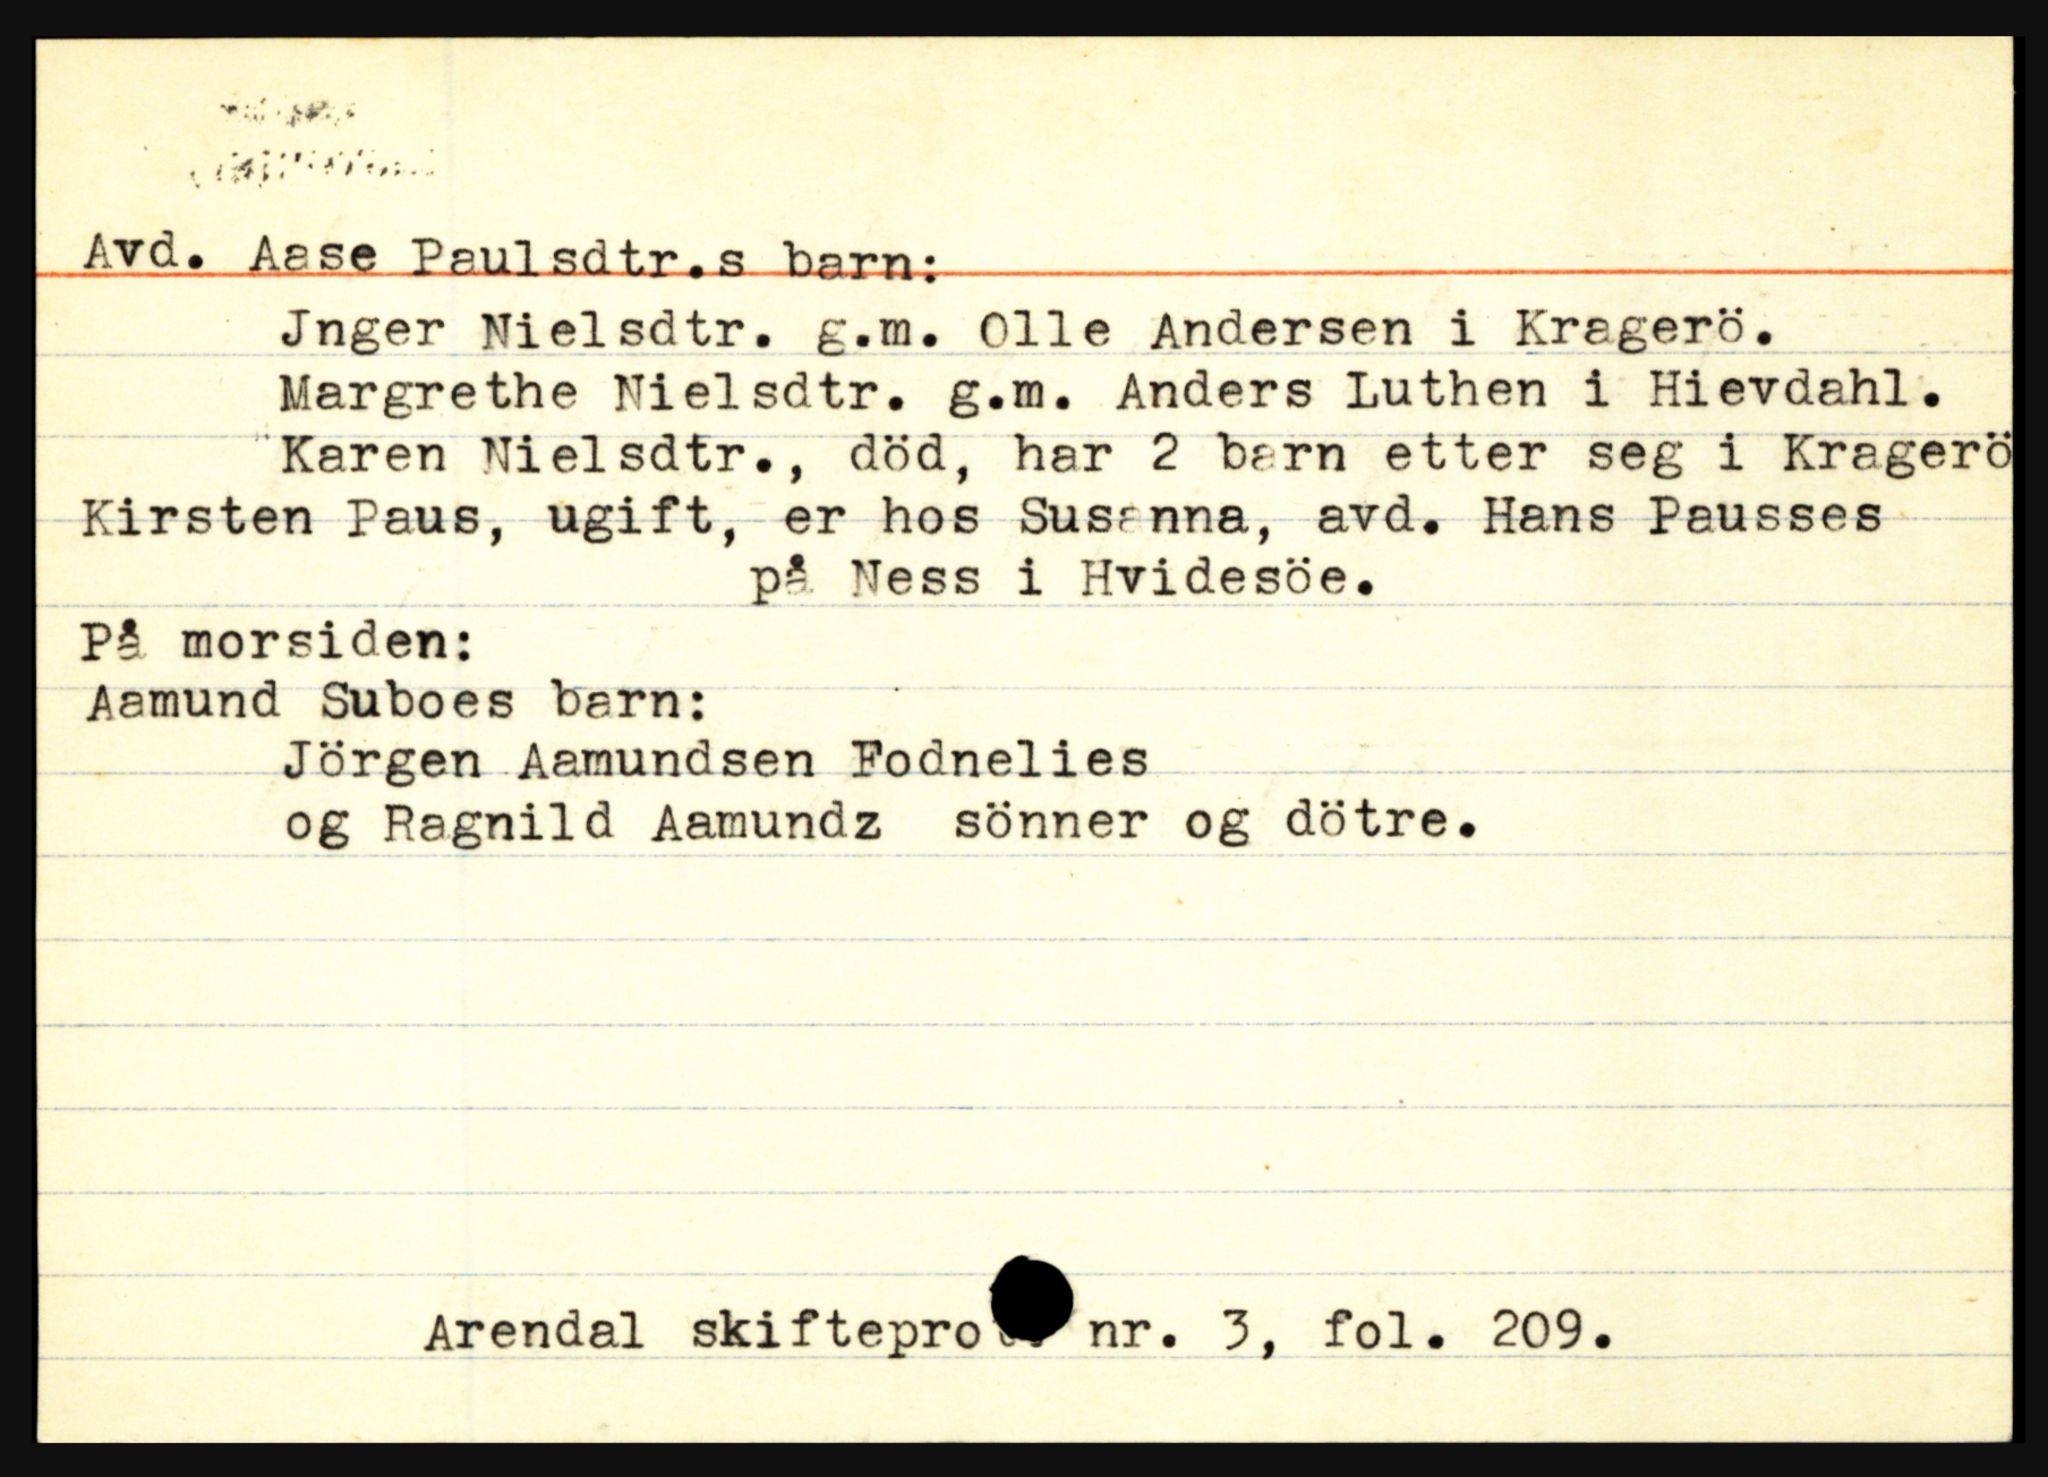 Avd. Aase Paulsdtr.s barn:
Jnger Nielsdtr. g.m. Olle Andersen i Kragerö.
Margrethe Nielsdtr. g.m. Anders Luthen i Hievdahl.
Karen Nielsdtr., död, har 2 barn etter seg i Kragerö
Kirsten Paus, ugift, er hos Susanna, avd. Hans Pausses
på Ness i Hvidesöe.
På morsiden:
Aamund Suboes barn:
Jörgen Aamundsen Fodnelies
og Ragnild Aamundz sönner og dötre.
Arendal skifteprot. nr. 3, fol. 209.